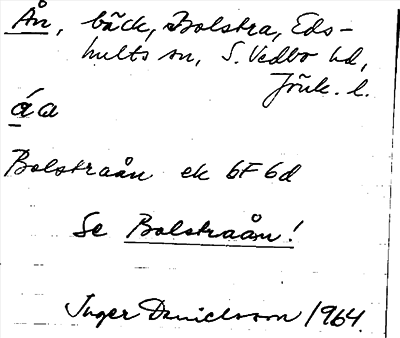 Ån, bäck, Bolstra, Eds-
hults sn, S. Vedbo hd,
Jönk. l.
áa
Bolstraån ek 6F 6d
Se Bolstraån!
Inger Danielsson 1964